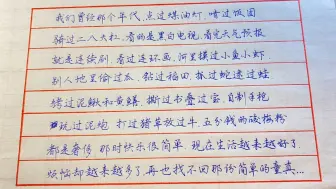 我们曾经那个年代,点过煤油灯,啃过饭团
骑过二八大杠,看的是黑白电视,看完天气预报
就是连续剧,看过连环画,河里摸过小鱼小虾
别人地里偷过瓜,钻过稻田,抓过蛇逮过蛙
捞过泥鳅和黄鳝,撕过书叠过宝,自制手枪
玩过泥炮,打过猪草放过牛,五分钱的酸梅粉
都是奢侈,那时快乐很简单,现在生活越来越好了
烦恼却越来越多了,再也找不回那份简单的童真…